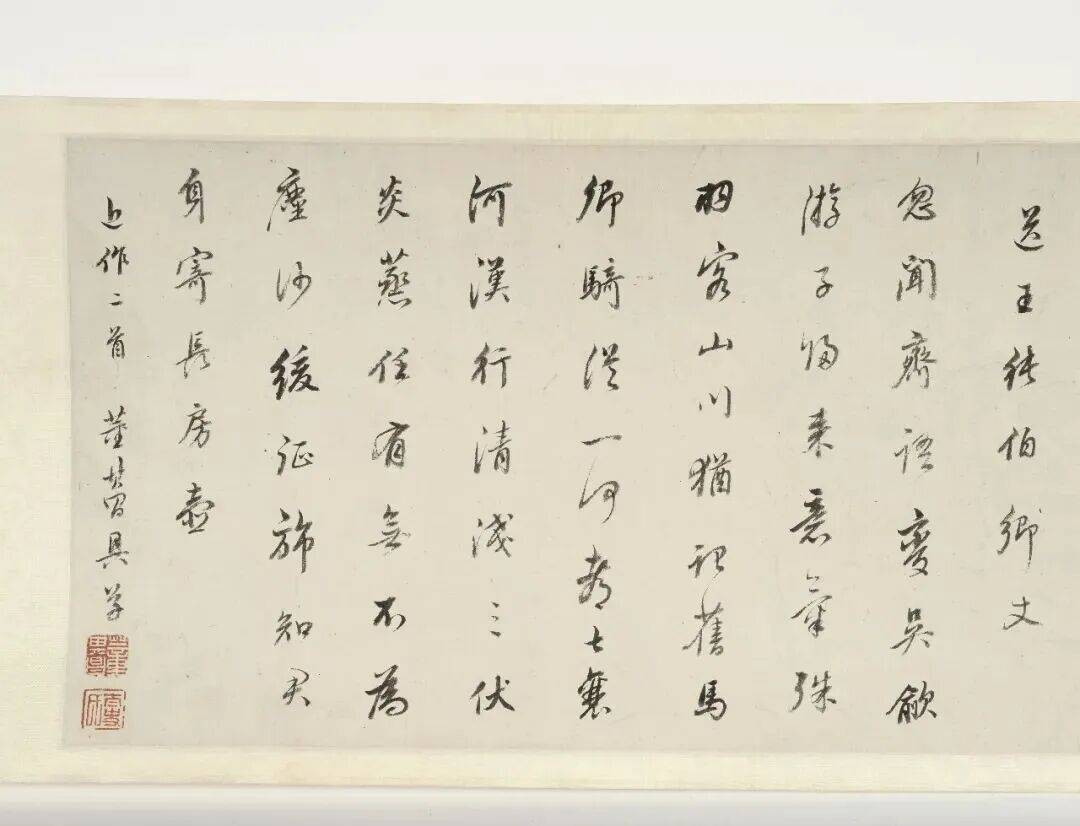 送王伯卿丈
忽聞齊語變吳歈
游子歸來意氣殊
羽客山川猶記舊馬
卿騎從一何都七襄
河漢行清淺三伏
炎蒸任有無不為
塵沙緩征旆知君
身寄長房壺
近作二首 董其昌具草